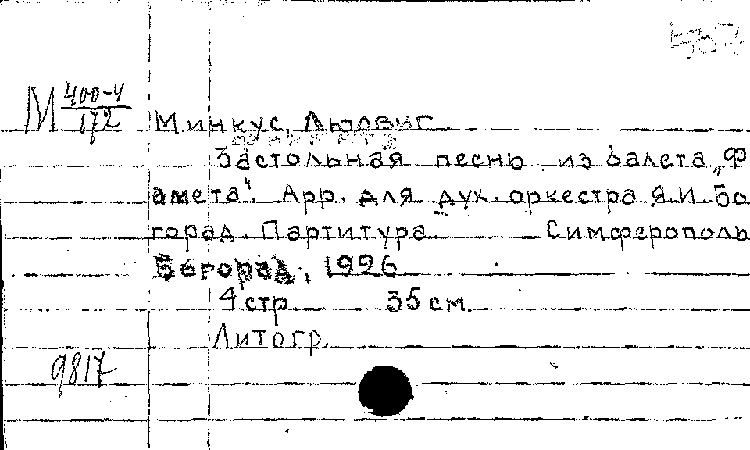 М 400-4
172
Минкус, Людвиг
Застольная песнь из балета „Ф
амета". Арр. для дух. оркестра Я.И. Бо
город. Партитура. Симферополь
Богород, 1926
4 стр. 35 см.
Литогр.
9817